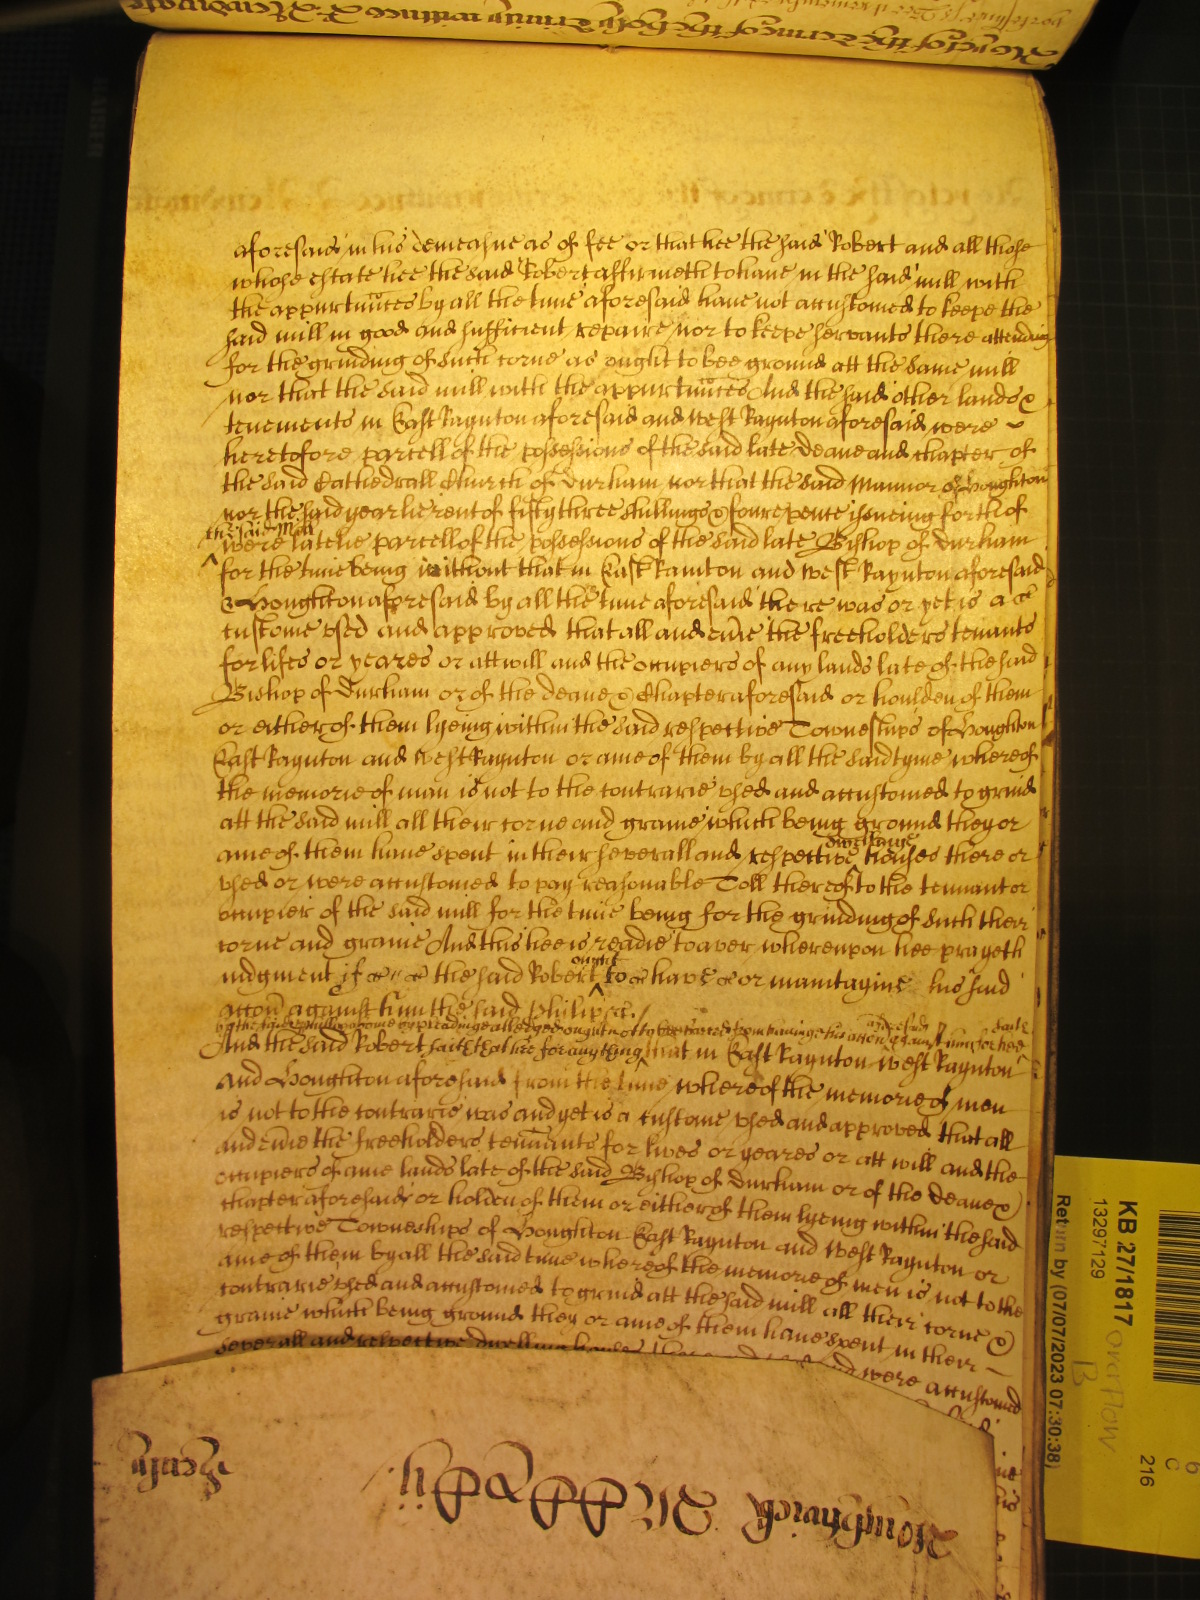 aforesaid in his demeasne as of fee or that hee the said Robert and all those
whose estate hee the said Robert affirmeth to haue in the said mill with
the appurtnñces by all the time aforesaid haue not accustomed to keepe the
said mill in good and sufficient repaire nor to keepe servants there attending
for the grinding of such corne as ought to bee ground att the same mill
nor that the said mill with the appurtnñces And the said other lands &
tenements in East Raynton aforesaid and West Raynton aforesaid were
heretofore parcell of the possessions of the said late Deane and chapter of
the said Cathedrall Church of Durham nor that the said Mannor of Houghton
nor the said yearlie rent of fifty three shillings & foure pence issueing forth of
the said Mill
were latelie parcell of the possessions of the said late Bishop of Durham
for the time being without that in East Rainton and West Raynton aforesaid
& Houghton aforesaid by all the time aforesaid there was or yet is a
custome vsed and approved that all and eũie the freeholders tenants
for lifes or yeares or att will and the occupiers of any lands late of the said
Bishop of Durham or of the deane & Chapter aforesaid or houlden of them
or either of them lyeing within the said respective Towneships of Houghton
East Raynton and West Raynton or anie of them by all the said tyme whereof
the memorie of man is not to the contrarie vsed and accustomed to grind
att the said mill all their corne and graine which being ground they or
anie of them haue spent in their severall and respective dwelling houses there or
vsed or were accustomed to pay reasonable Toll thereof to the tennant or
occupier of the said mill for the time being for the grinding of such their
corne and graine And this hee is readie to aver whereupon hee prayeth
iudgment if the said Robert ought to have or maintayne his said
accoñ against him the said Philip &c.
And the said Robert saith that hee for anything by the said Phillip aboue by pleadinge alledged ought not to bee barred from haueinge his accoñ aforesd against him for hee saith
that in East Raynton West Raynton
and Houghton aforesaid from the time whereof the memorie of men
is not to the contrarie was and yet is a custome vsed and approved that all
and eũie the freeholders tenãnts for lives or yeares or att will and the
occupiers of anie lands late of the said Bishop of Durham or of the Deane &
chapter aforesaid or holden of them or either of them lyeing within the said
respective Towneships of Houghton East Raynton and West Raynton or
anie of them by all the said time whereof the memorie of men is not to the
contrarie vsed and accustomed to grind att the said mill all their corne &
graine which being ground they or anie of them haue spent in their
severall and respective dwelling houses there and were accustomed
KB 27/1817
13297129
Return by (07/07/2023 07:30:38)
overflow
B
216